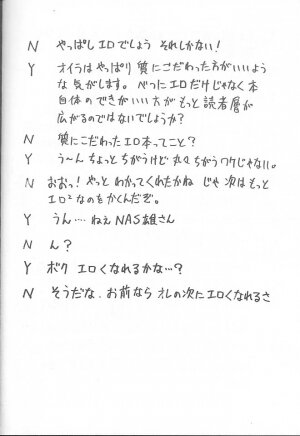 N やっぱしエロでしょう それしかない!
Y オイラはやっぱり質にこだわった方がいいよう
な気がします。べつにエロだけじゃなく本
自体のできがいい方がもっと読者層が
広がるのではないでしょうか?
N 質にこだわったエロ本ってこと?
Y う〜んちょっとちがうけど丸々ちがうワケじゃない。
N おおっ!やっとわかってくれたかね じゃ次はもっと
エロ²なのをかくんだぞ。
Y うん…ねえNAS組さん
N ん?
Y ボク エロくなれるかな…?
N そうだな、お前ならオレの次にエロくなれるさ